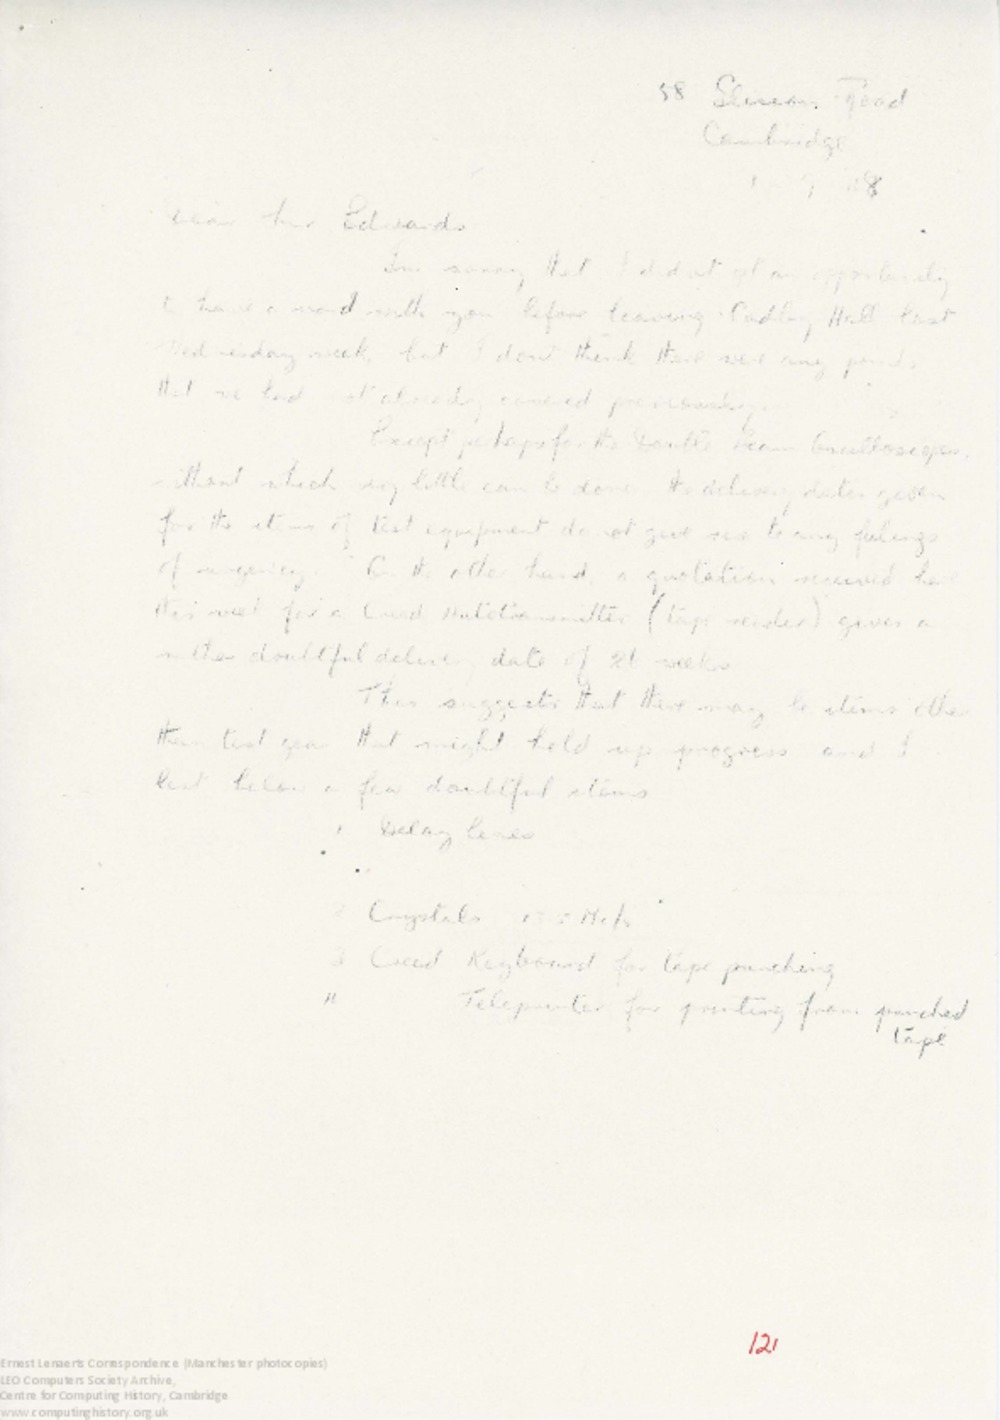 58 Road
Cambridge
Dear Mr Edwards
I'm sorry that I did not get an opportunity
to have a word with you before leaving Cadby Hall last
Wednesday week, but I don't think there were any points
that we had not already covered previously.
Except perhaps for the Double Beam Oscilloscopes,
without which very little can be done the delivery dates given
for the items of test equipment do not give rise to any feelings
of urgency. On the other hand, a quotation received here
this week for a Creed Autotransmitter (tape reader) gives a
rather doubtful delivery date of 21 weeks
This suggests that there may be items other
than test gear that might hold up progress and I
list below a few doubtful items
1 Delay lines
2 Crystals Mc/s
3 Creed Keyboard for tape punching
" Teleprinter for printing from punched
tape
121
Ernest Lenaerts Correspondence (Manchester photocopies)
LEO Computers Society Archive,
Centre for Computing History, Cambridge
www.computinghistory.org.uk